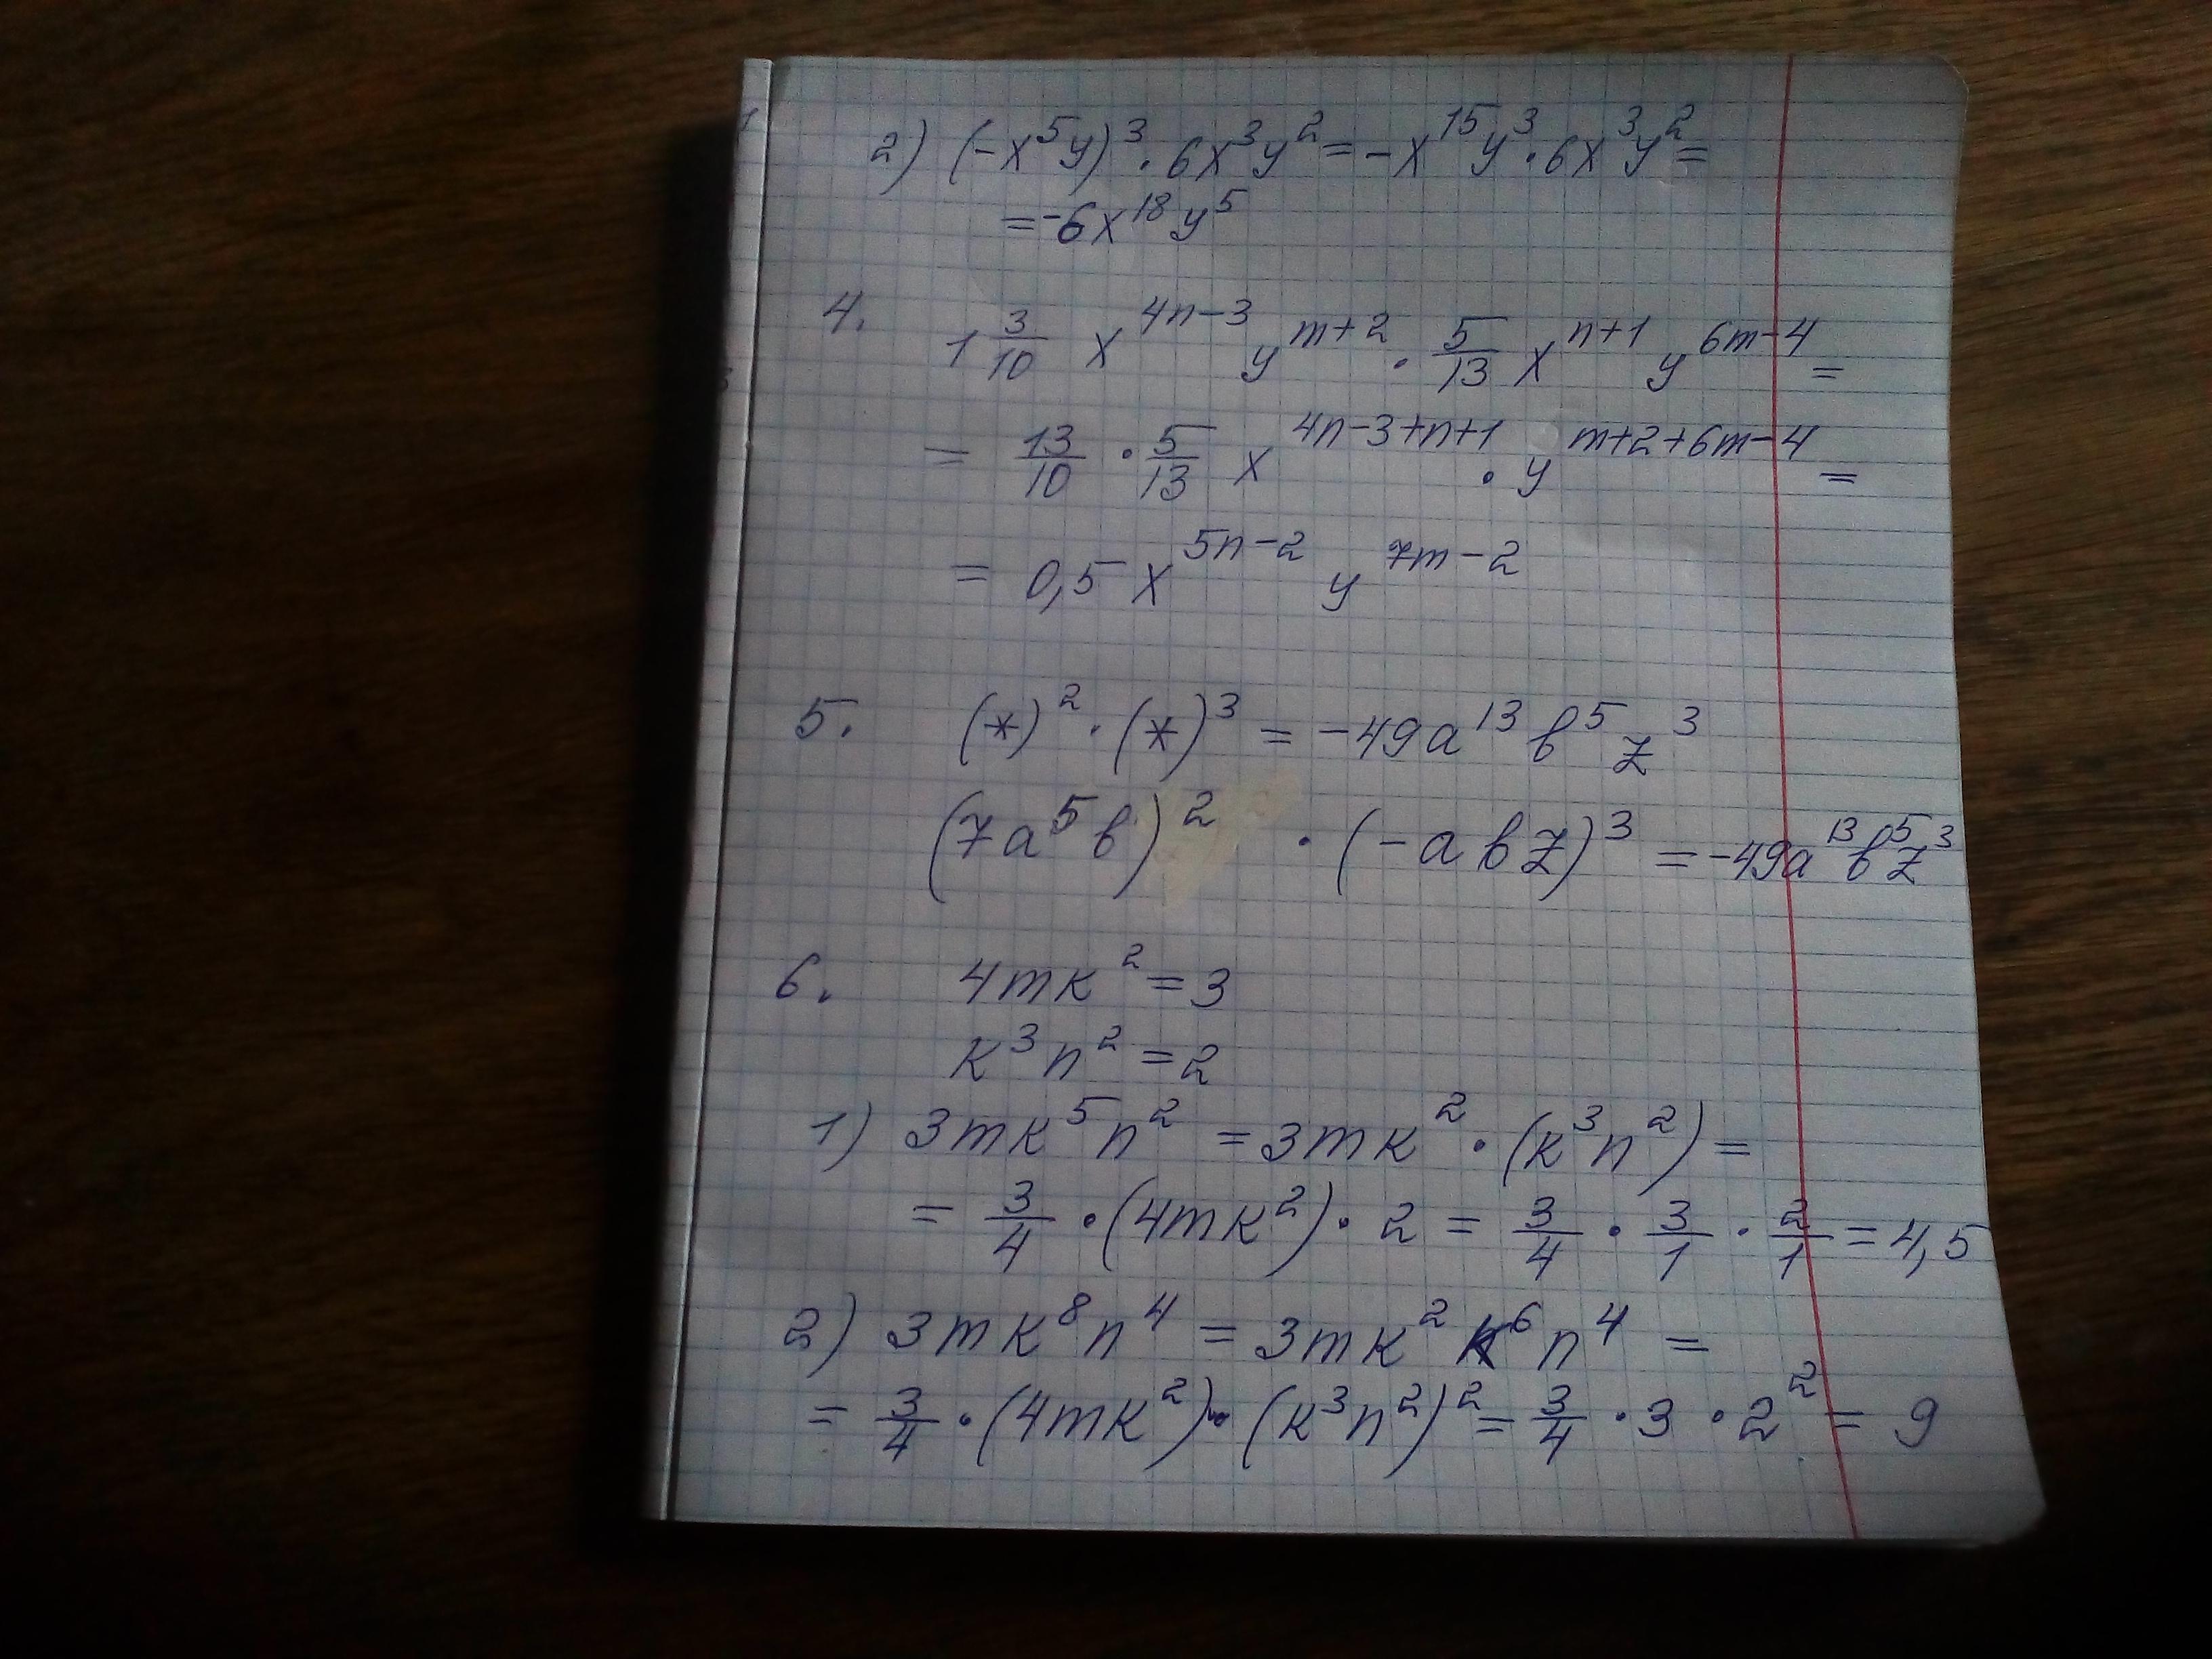 2) (-x⁵y)³ · 6x³y² = -x¹⁵y³ · 6x³y² =
= -6x¹⁸y⁵
4. 1 3/10 x^(4n-3) y^(m+2) · 5/13 x^(n+1) y^(6m-4) =
= 13/10 · 5/13 x^(4n-3+n+1) · y^(m+2+6m-4) =
= 0,5 x^(5n-2) y^(7m-2)
5. (*)² · (*)³ = -49a¹³b⁵z³
(7a⁵b)² · (-abz)³ = -49a¹³b⁵z³
6. 4mk² = 3
k³n² = 2
1) 3mk⁵n² = 3mk² · (k³n²) =
= 3/4 · (4mk²) · 2 = 3/4 · 3/1 · 2/1 = 4,5
2) 3mk⁸n⁴ = 3mk² k⁶ n⁴ =
= 3/4 · (4mk²) · (k³n²)² = 3/4 · 3 · 2² = 9